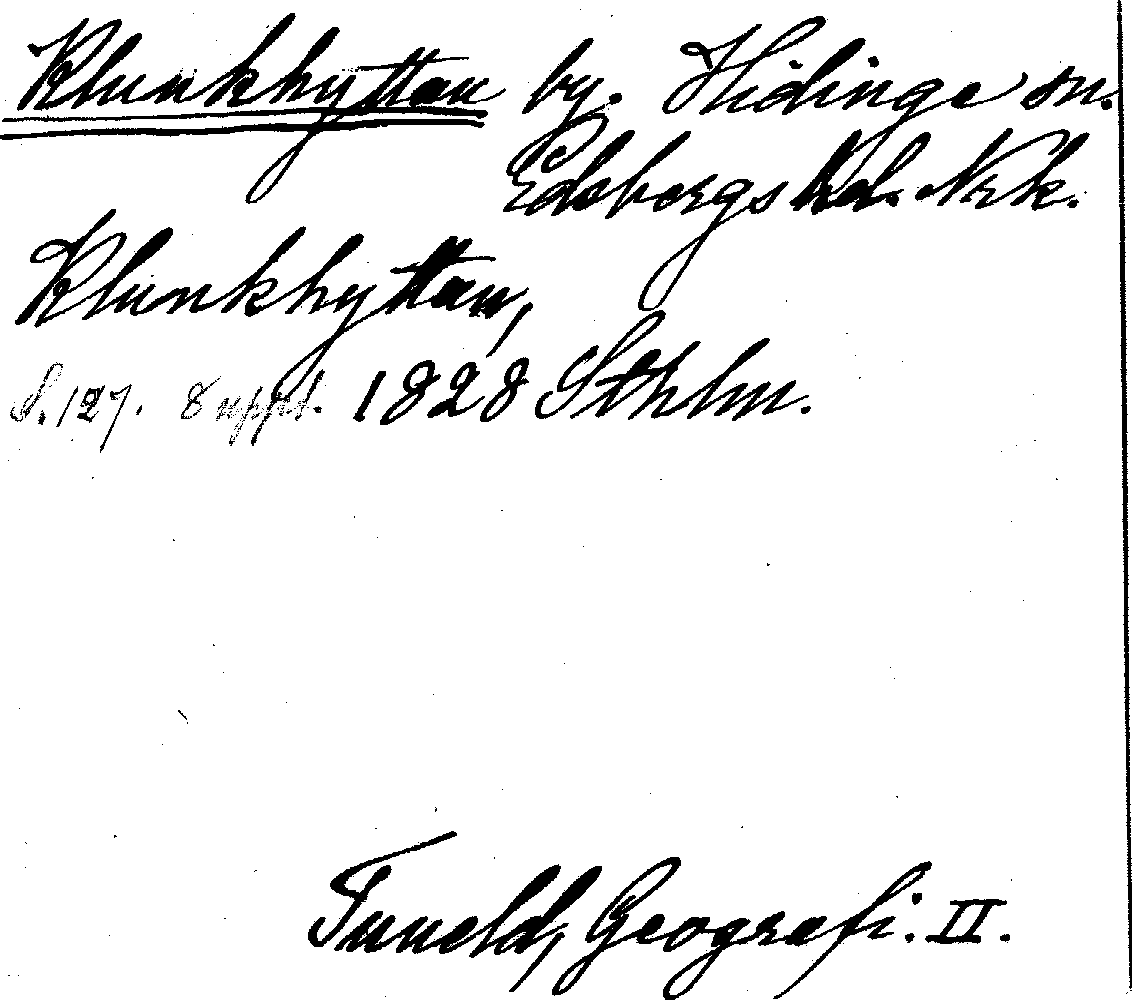 Klunkhyttan by. Hidinge sn.
Edsbergs hd. Nrk.
Klunkhyttan,
S. 127. 8 uppl. 1828 Sthlm.
Tuneld, Geografi. II.